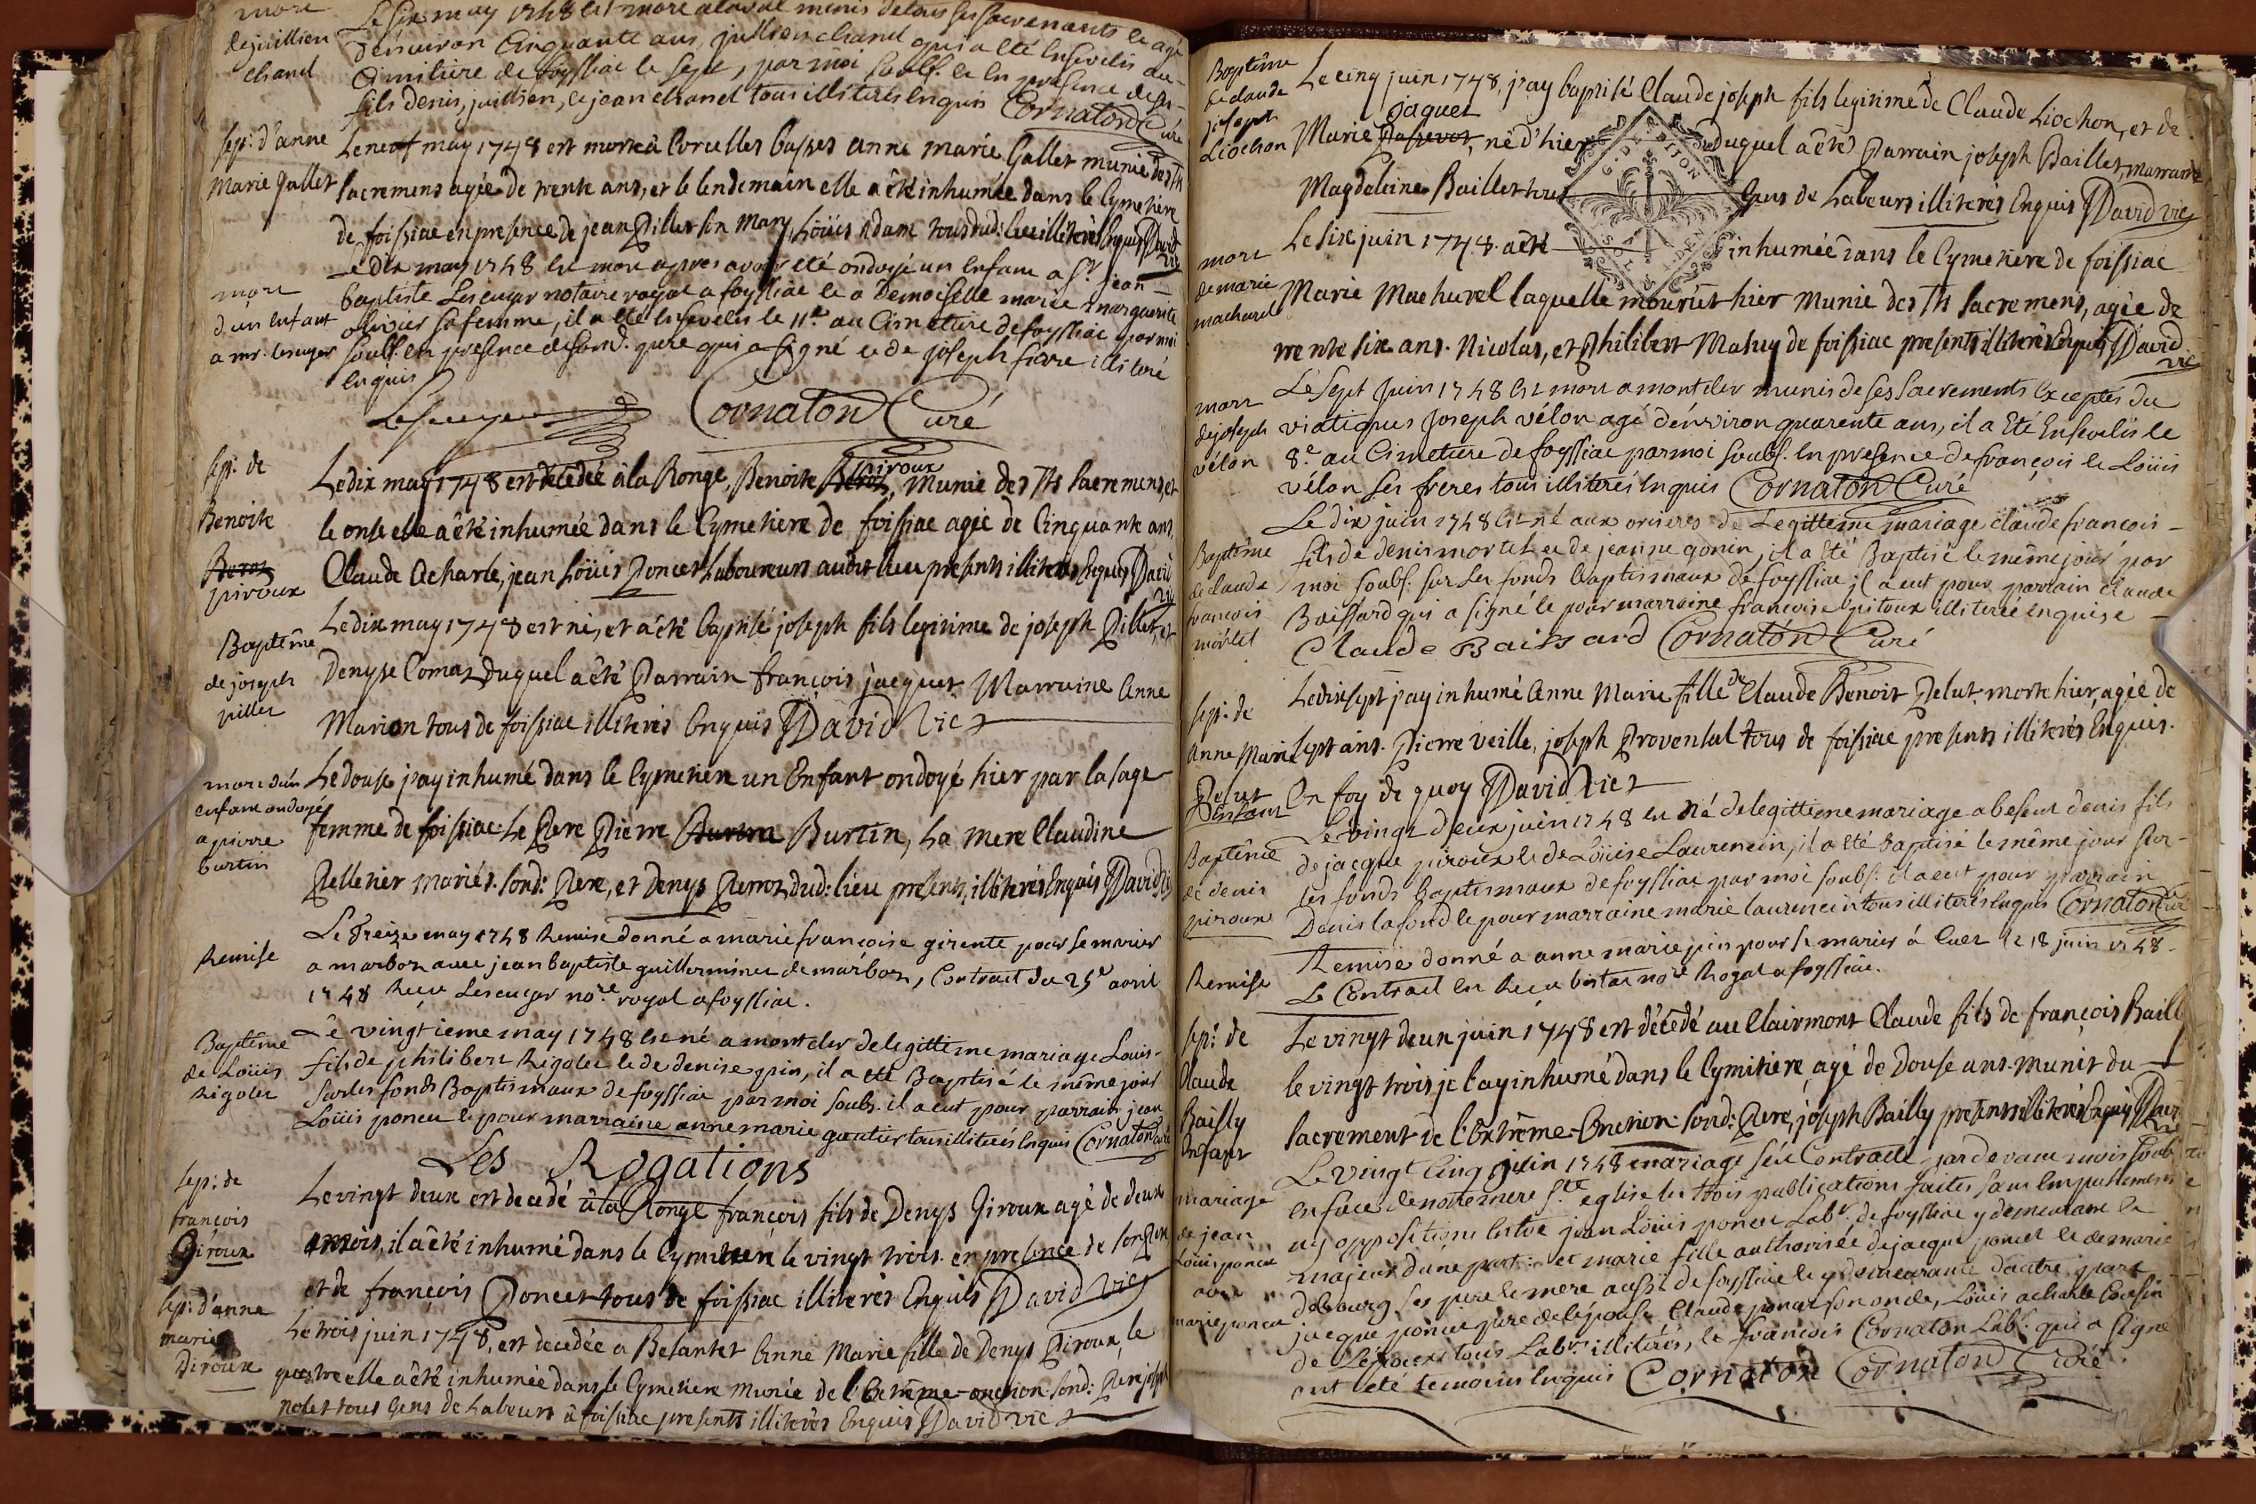 mort
de juillien
chanel
Le six may 1748 est mort a laval munis de tous ses sacrements et agé
d'environ Cinquante ans, juillien chanel qui a eté Ensevelis au
Cimitiere de foyssiac le sept, par moi soubs. et En presence de ses
fils denis, juillien, et jean chanel tous illiterés Enquis Cornaton Curé
sep: d'anne
Marie Gallet
Le neuf may 1748 est morte à Corcelles basses Anne Marie Gallet munie des Sts
sacremens agée de trente ans, et le lendemain elle a êté inhumée dans le Cymetiere
de foissiac en presence de jean Pillet son Mary, Loüis Adam tous dud: lieu illiterés Enquis David
vic
mort
d'un enfant
a mr. lescuyer
Le dix may 1748 est mort apres avoir eté ondoyé un enfant a Sr. jean
baptiste Lescuyer notaire royal a foyssiac et a Demoiselle marie marguerite
olivier sa femme, il a eté Ensevelis le 11e. au Cimetiere de foyssiac par moi
soubs. en presence de sond. pere qui a signé et de joseph favre illiteré
enquis
Lescuyer Cornaton Curé
sep: de
Benoite
Perret
piroux
Le dix may 1748 est decedée à la Ronge, Benoite Piroux, munie des Sts sacremens, et
le onse elle a êté inhumée dans le Cymetiere de foissiac agée de Cinquante ans.
Claude Acharle, jean Loüis Poncet Laboureurs audit lieu presents illiterés Enquis David
vic
Baptême
de joseph
pillet
Le dix may 1748 est né, et a êté baptisé joseph fils legitime de joseph Pillet, et
Denyse Comaz duquel a êté Parrain françois jacquet Marraine Anne
Marion tous de foissiac illiterés Enquis David Vic
mort d'un
enfant ondoyé
a pierre
burtin
Le douse j'ay inhumé dans le Cymetiere un Enfant ondoyé hier par la sage
femme de foissiac. Le Pere Pierre Burtin, La mere Claudine
Pelletier mariés. sond: Pere, et Denys Perroz dud: lieu presents, illiterés Enquis David vic
Remise
Le Treize may 1748 Remise donné a marie françoise girente pour se marier
a marboz avec jean baptiste guillerminet de marboz, Contract du 25e avril
1748 Reçu Lescuyer nore. royal a foyssiac.
Baptême
de Loüis
Rigolet
Le vingtieme may 1748 est né a montcler de legittime mariage Louis
fils de philibert Rigolet et de denise pin, il a eté Baptisé le même jour
sur les fonds Baptismaux de foyssiac par moi soubs. il a eut pour parrain jean
Loüis poncet et pour marraine anne marie gautier tous illiterés Enquis Cornaton Curé
Les Rogations
sep: de
françois
Piroux
Le vingt deux est decedé à la Ronge françois fils de Denys Piroux agé de deux
mois, il a êté inhumé dans le Cymetiere le vingt trois. en presence de son Pere
et de françois Poncet tous de foissiac illiterés Enquis David Vic
sep: d'anne
marie
Piroux
Le trois juin 1748, est decedée a Besantet Anne Marie fille de Denys Piroux, le
quatre elle a êté inhumée dans le Cymetiere munie de l'Extrême-onction. sond: Pere, joseph
nolet tous Gens de Labeurs a foissiac presents illiterés Enquis David vic
Baptême
de claude
joseph
Liochon
Le cinq juin 1748, j'ay baptisé Claude joseph fils legitime de Claude Liochon, et de
jaquet
Marie né d'hier duquel a êté Parrain joseph Baillet, marraine
Magdeleine Baillet tous Gens de Labeurs illiterés Enquis David vic
mort
de marie
machurel
Le six juin 1748. a êté inhumée dans le Cymetiere de foissiac
Marie Machurel laquelle mourût hier munie des Sts sacremens, agée de
trente six ans. Nicolas, et Philibert Mahuy de foissiac presents illiterés Enquis David
vic
mort
de joseph
vélon
Le sept juin 1748 est mort a montcler munis de ses sacrements Exceptés du
viatiques Joseph vélon agé d'environ quarente ans, il a Eté Ensevelis le
8.e au Cimetiere de foyssiac par moi soubs. En presence de françois et Loüis
vélon ses freres tous illiterés Enquis Cornaton Curé
Baptême
de claude
françois
mortel
Le dix juin 1748 est né aux orieres de Legittime mariage claude françois
fils de denis mortel et de jeanne gonin, il a Eté Baptisé le même jour par
moi soubs. sur les fonds baptismaux de foyssiac il a eut pour parrain claude
Boissard qui a signé et pour marraine françoise pitoux illiterée enquise
Claude Baissard Cornaton Curé
sep: de
Anne Marie
Pelut
Enfant
Le dix sept j'ay inhumé Anne Marie fille de Claude Benoit Pelut morte hier, agée de
sept ans. Pierre veille, joseph Provensal tous de foissiac presents illiterés Enquis.
En foy de quoy David Vic
Baptême
de denis
piroux
Le vingt deux juin 1748 est né de legittime mariage a besent denis fils
de jacque piroux et de Loüise Laurencin, il a eté Baptisé le même jour sur
les fonds Baptismaux de foyssiac par moi soubs. il a eut pour parrain
Denis lafond et pour marraine marie laurencin tous illiterés Enquis Cornaton Curé
Remise
Remise donné a anne marie pin pour se marier à Cuet le 18 juin 1748.
Le Contract est Recu bottar nore Royal a foyssiac.
sep: de
Claude
Bailly
Enfant
Le vingt deux juin 1748 est décedé au Clairmont Claude fils de françois Bailly
le vingt trois je l'ay inhumé dans le Cymitiere, agé de Douse ans. Munit du
sacrement de l'Extrême-Onction. sond: Pere, joseph Bailly presents illiterés Enquis David
vic
mariage
de jean
Loüis poncet
avec
marie poncet
Le vingt Cinq juin 1748 mariage s'est Contracté pardevant moi soub.
en face de notre mere Ste. eglise les trois publications faites sans Empechements
ny oppositions Entre jean Loüis poncet Labr. de foyssiac y demeurant et
majeur d'une part: et marie fille authorisée de jacque poncet et de marie
debourg ses pere et mere aussi de foyssiac et y demeurante d'autre part
jacque poncet pere de l'épouse Claude poncet son oncle, Loüis acharle Cousin
de L'époux tous Labrs. illiterés, et françois Cornaton Labr. qui a signé
ont eté temoins Enquis Cornaton Cornaton Curé